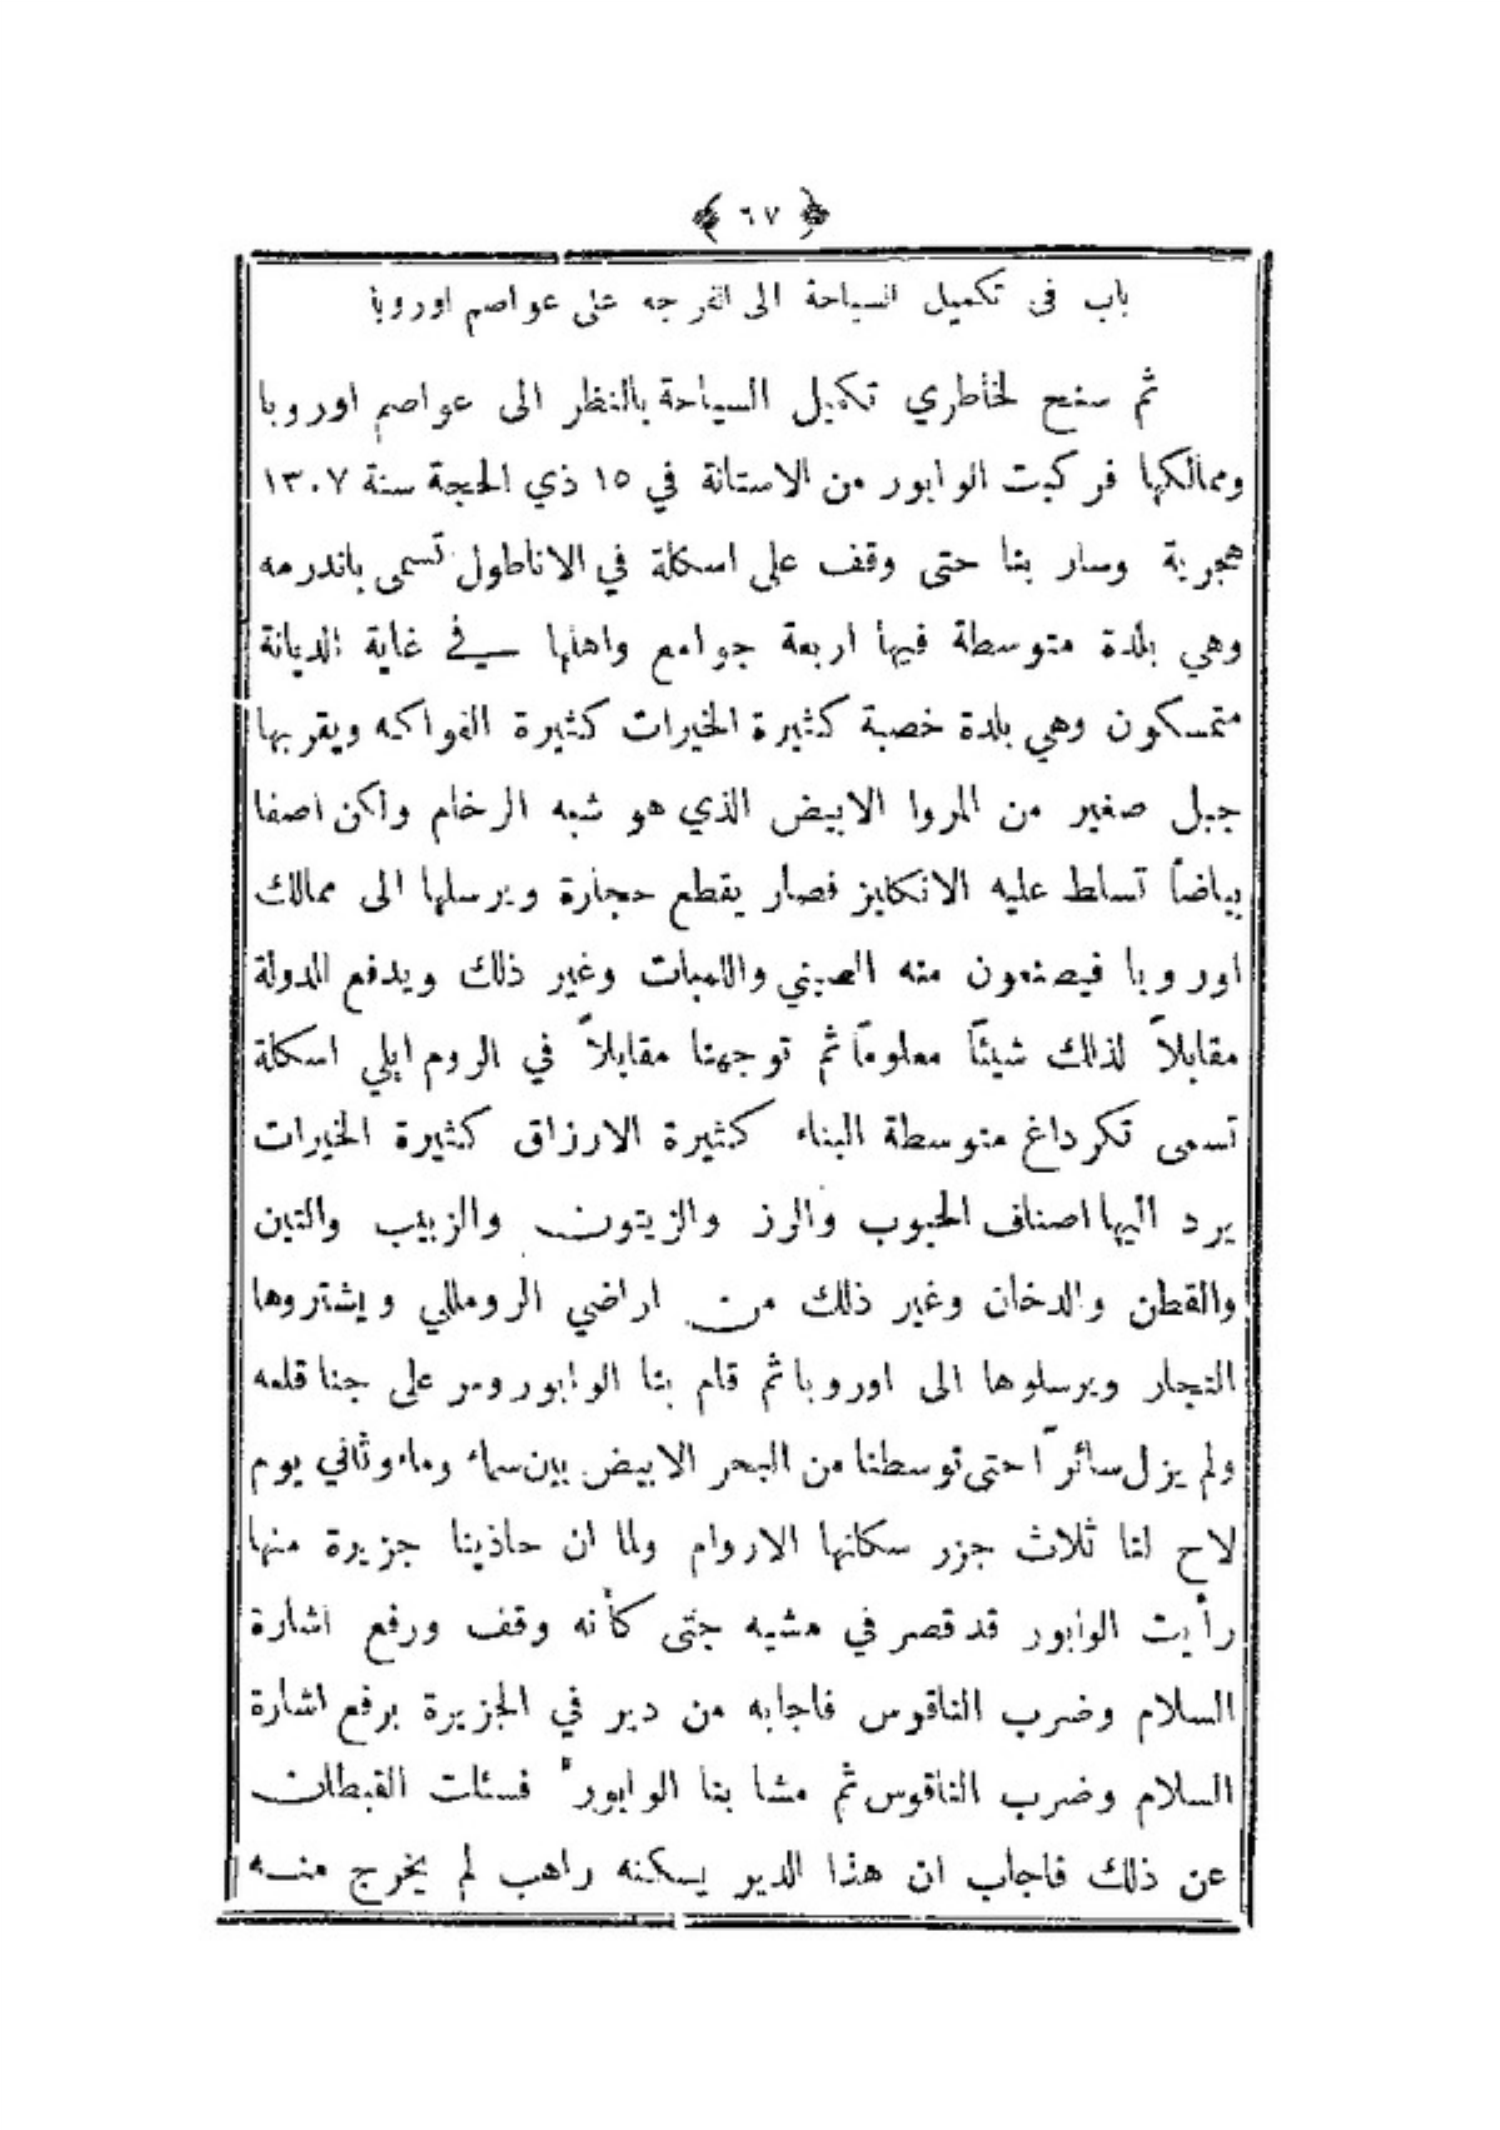 ﴿ ٦٧ ﴾
باب في تكميل السياحة الى الفرجه على عواصم اوروبا
ثم سنح لخاطري تكميل السياحة بالنظر الى عواصم اوروبا
وممالكها فركبت الوابور من الاستانة في ١٥ ذي الحجة سنة ١٣٠٧
هجرية وسار بنا حتى وقف على اسكلة في الاناطول تسمى باندرمه
وهي بلدة متوسطة فيها اربعة جوامع واهلها في غاية الديانة
متمسكون وهي بلدة خصبة كثيرة الخيرات كثيرة الفواكه ويقربها
جبل صغير من المروا الابيض الذي هو شبه الرخام ولكن اصفا
بياضاً تسلط عليه الانكليز فصار يقطع حجارة ويرسلها الى ممالك
اوروبا فيصنعون منه الصيني واللمبات وغير ذلك ويدفع للدولة
مقابلاً لذلك شيئاً معلوماً ثم توجهنا مقابلاً في الروم ايلي اسكلة
تسمى تكرداغ متوسطة البناء كثيرة الارزاق كثيرة الخيرات
يرد اليها اصناف الحبوب والرز والزيتون والزبيب والتين
والقطن والدخان وغير ذلك من اراضي الروملي ويشتروها
التجار ويرسلوها الى اوروبا ثم قام بنا الوابور ومر على جنا قلعه
ولم يزل سائراً حتى توسطنا من البحر الابيض بين سماء وماء وثاني يوم
لاح لنا ثلاث جزر سكانها الاروام ولما ان حاذينا جزيرة منها
رأيت الوابور قد قصر في مشيه حتى كأنه وقف ورفع اشارة
السلام وضرب الناقوس فاجابه من دير في الجزيرة برفع اشارة
السلام وضرب الناقوس ثم مشا بنا الوابور فسئلت القبطان
عن ذلك فاجاب ان هذا الدير يسكنه راهب لم يخرج منه